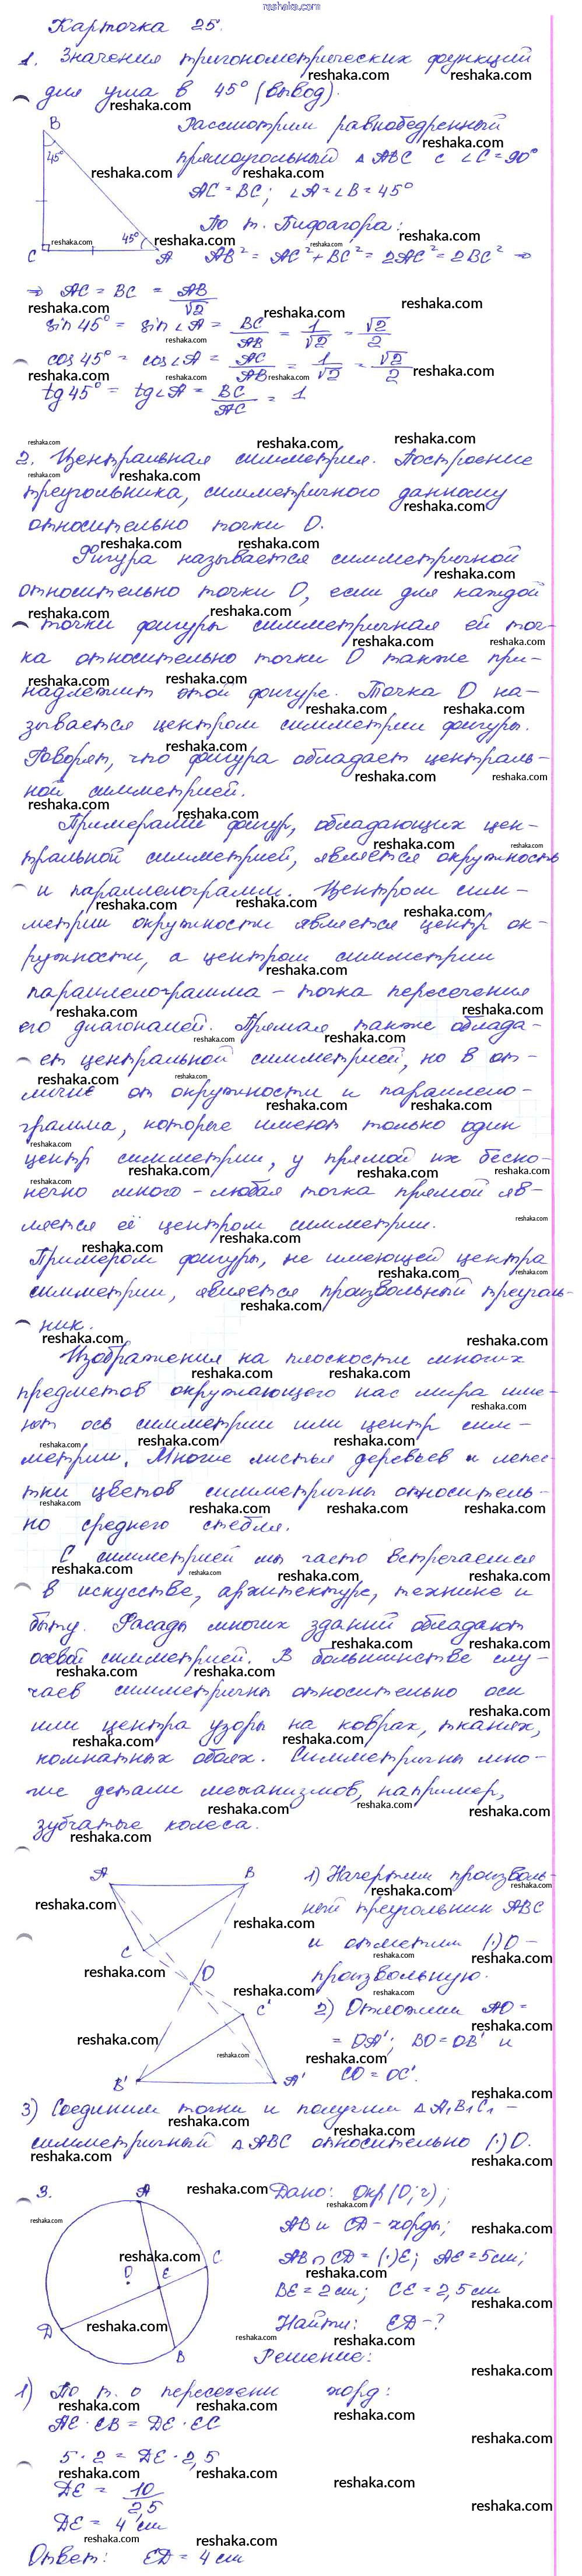 reshaka.com
Карточка 25.
1. Значения тригонометрических функций
для угла в 45° (вывод).
Рассмотрим равнобедренный
прямоугольный △ ABC с ∠C = 90°
AC = BC; ∠A = ∠B = 45°
По т. Пифагора:
AB² = AC² + BC² = 2AC² = 2BC² ⇒
⇒ AC = BC = AB/√2
sin 45° = sin ∠A = BC/AB = 1/√2 = √2/2
cos 45° = cos ∠A = AC/AB = 1/√2 = √2/2
tg 45° = tg ∠A = BC/AC = 1
B
45°
45°
C
A
2. Центральная симметрия. Построение
треугольника, симметричного данному
относительно точки O.
Фигура называется симметричной
относительно точки O, если для каждой
точки фигуры симметричная ей точ-
ка относительно точки O также при-
надлежит этой фигуре. Точка O на-
зывается центром симметрии фигуры.
Говорят, что фигура обладает централь-
ной симметрией.
Примерами фигур, обладающих цен-
тральной симметрией, является окружность
и параллелограмм. Центром сим-
метрии окружности является центр ок-
ружности, а центром симметрии
параллелограмма – точка пересечения
его диагоналей. Прямая также облада-
ет центральной симметрией, но в от-
личие от окружности и параллело-
грамма, которые имеют только один
центр симметрии, у прямой их беско-
нечно много – любая точка прямой яв-
ляется её центром симметрии.
Примером фигуры, не имеющей центра
симметрии, является произвольный треуголь-
ник.
Изображения на плоскости многих
предметов окружающего нас мира име-
ют ось симметрии или центр сим-
метрии. Многие листья деревьев и лепес-
тки цветов симметричны относитель-
но среднего стебля.
С симметрией мы часто встречаемся
в искусстве, архитектуре, технике и
быту. Фасады многих зданий обладают
осевой симметрией. В большинстве слу-
чаев симметричны относительно оси
или центра узоры на коврах, тканях,
комнатных обоях. Симметричны мно-
гие детали механизмов, например,
зубчатые колеса.
A
B
C
O
C'
B'
A'
1) Начертим произволь-
ный треугольник ABC
и отметим (·)O –
произвольную.
2) Отложим AO =
= OA'; BO = OB' и
CO = OC'.
3) Соединим точки и получим △ A₁B₁C₁ –
симметричный △ ABC относительно (·)O.
3.
A
C
O
E
D
B
Дано: Окр (O; r);
AB и CD – хорды;
AB ∩ CD = (·)E; AE = 5 см;
BE = 2 см; CE = 2,5 см
Найти: ED – ?
Решение:
1) По т. о пересечени хорд:
AE · EB = DE · EC
5 · 2 = DE · 2,5
DE = 10/2,5
DE = 4 см
Ответ: ED = 4 см